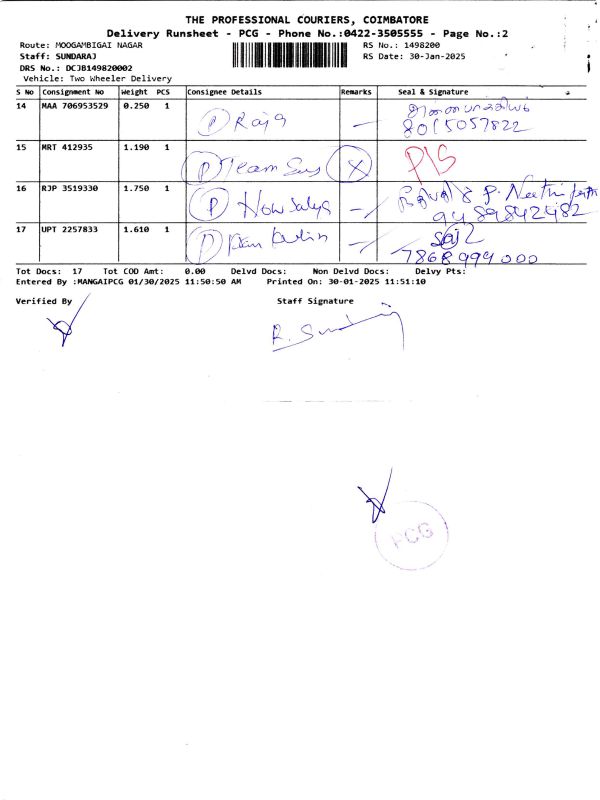 THE PROFESSIONAL COURIERS, COIMBATORE
Delivery Runsheet - PCG - Phone No.:0422-3505555 - Page No.:2
Route: MOOGAMBIGAI NAGAR RS No.: 1498200
Staff: SUNDARAJ RS Date: 30-Jan-2025
DRS No.: DCJB149820002
Vehicle: Two Wheeler Delivery
S No Consignment No Weight PCS Consignee Details Remarks Seal & Signature
14 MAA 706953529 0.250 1 P Raja
8015057822
15 MRT 412935 1.190 1 P Team Sus X PIS
16 RJP 3519330 1.750 1 P
9489842482
17 UPT 2257833 1.610 1 P
7868994000
Tot Docs: 17 Tot COD Amt: 0.00 Delvd Docs: Non Delvd Docs: Delvy Pts:
Entered By :MANGAIPCG 01/30/2025 11:50:50 AM Printed On: 30-01-2025 11:51:10
Verified By Staff Signature
PCG